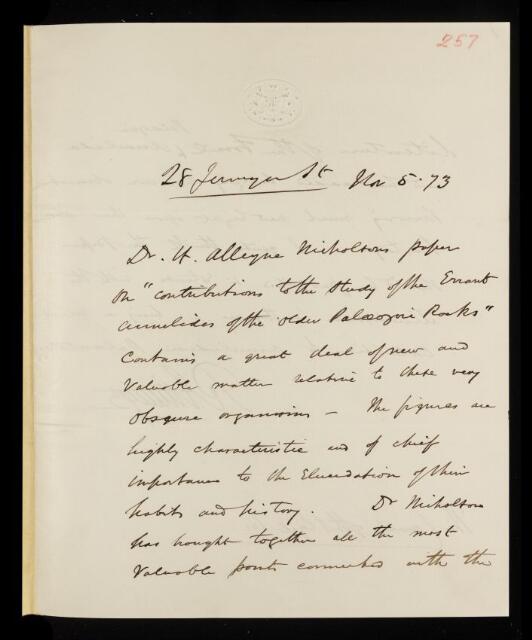 257
28 Jermyn St Nov 5. 73
Dr. H. Alleyne Nicholsons paper
on "contributions to the study of the Errant
annelides of the older Palæozoic Rocks"
Contains a great deal of new and
Valuable matter relative to these very
obscure organisms – The figures are
highly characteristic and of chief
importance to the Elucidation of their
habits and history. Dr Nicholson
has brought together all the most
Valuable points connected with the